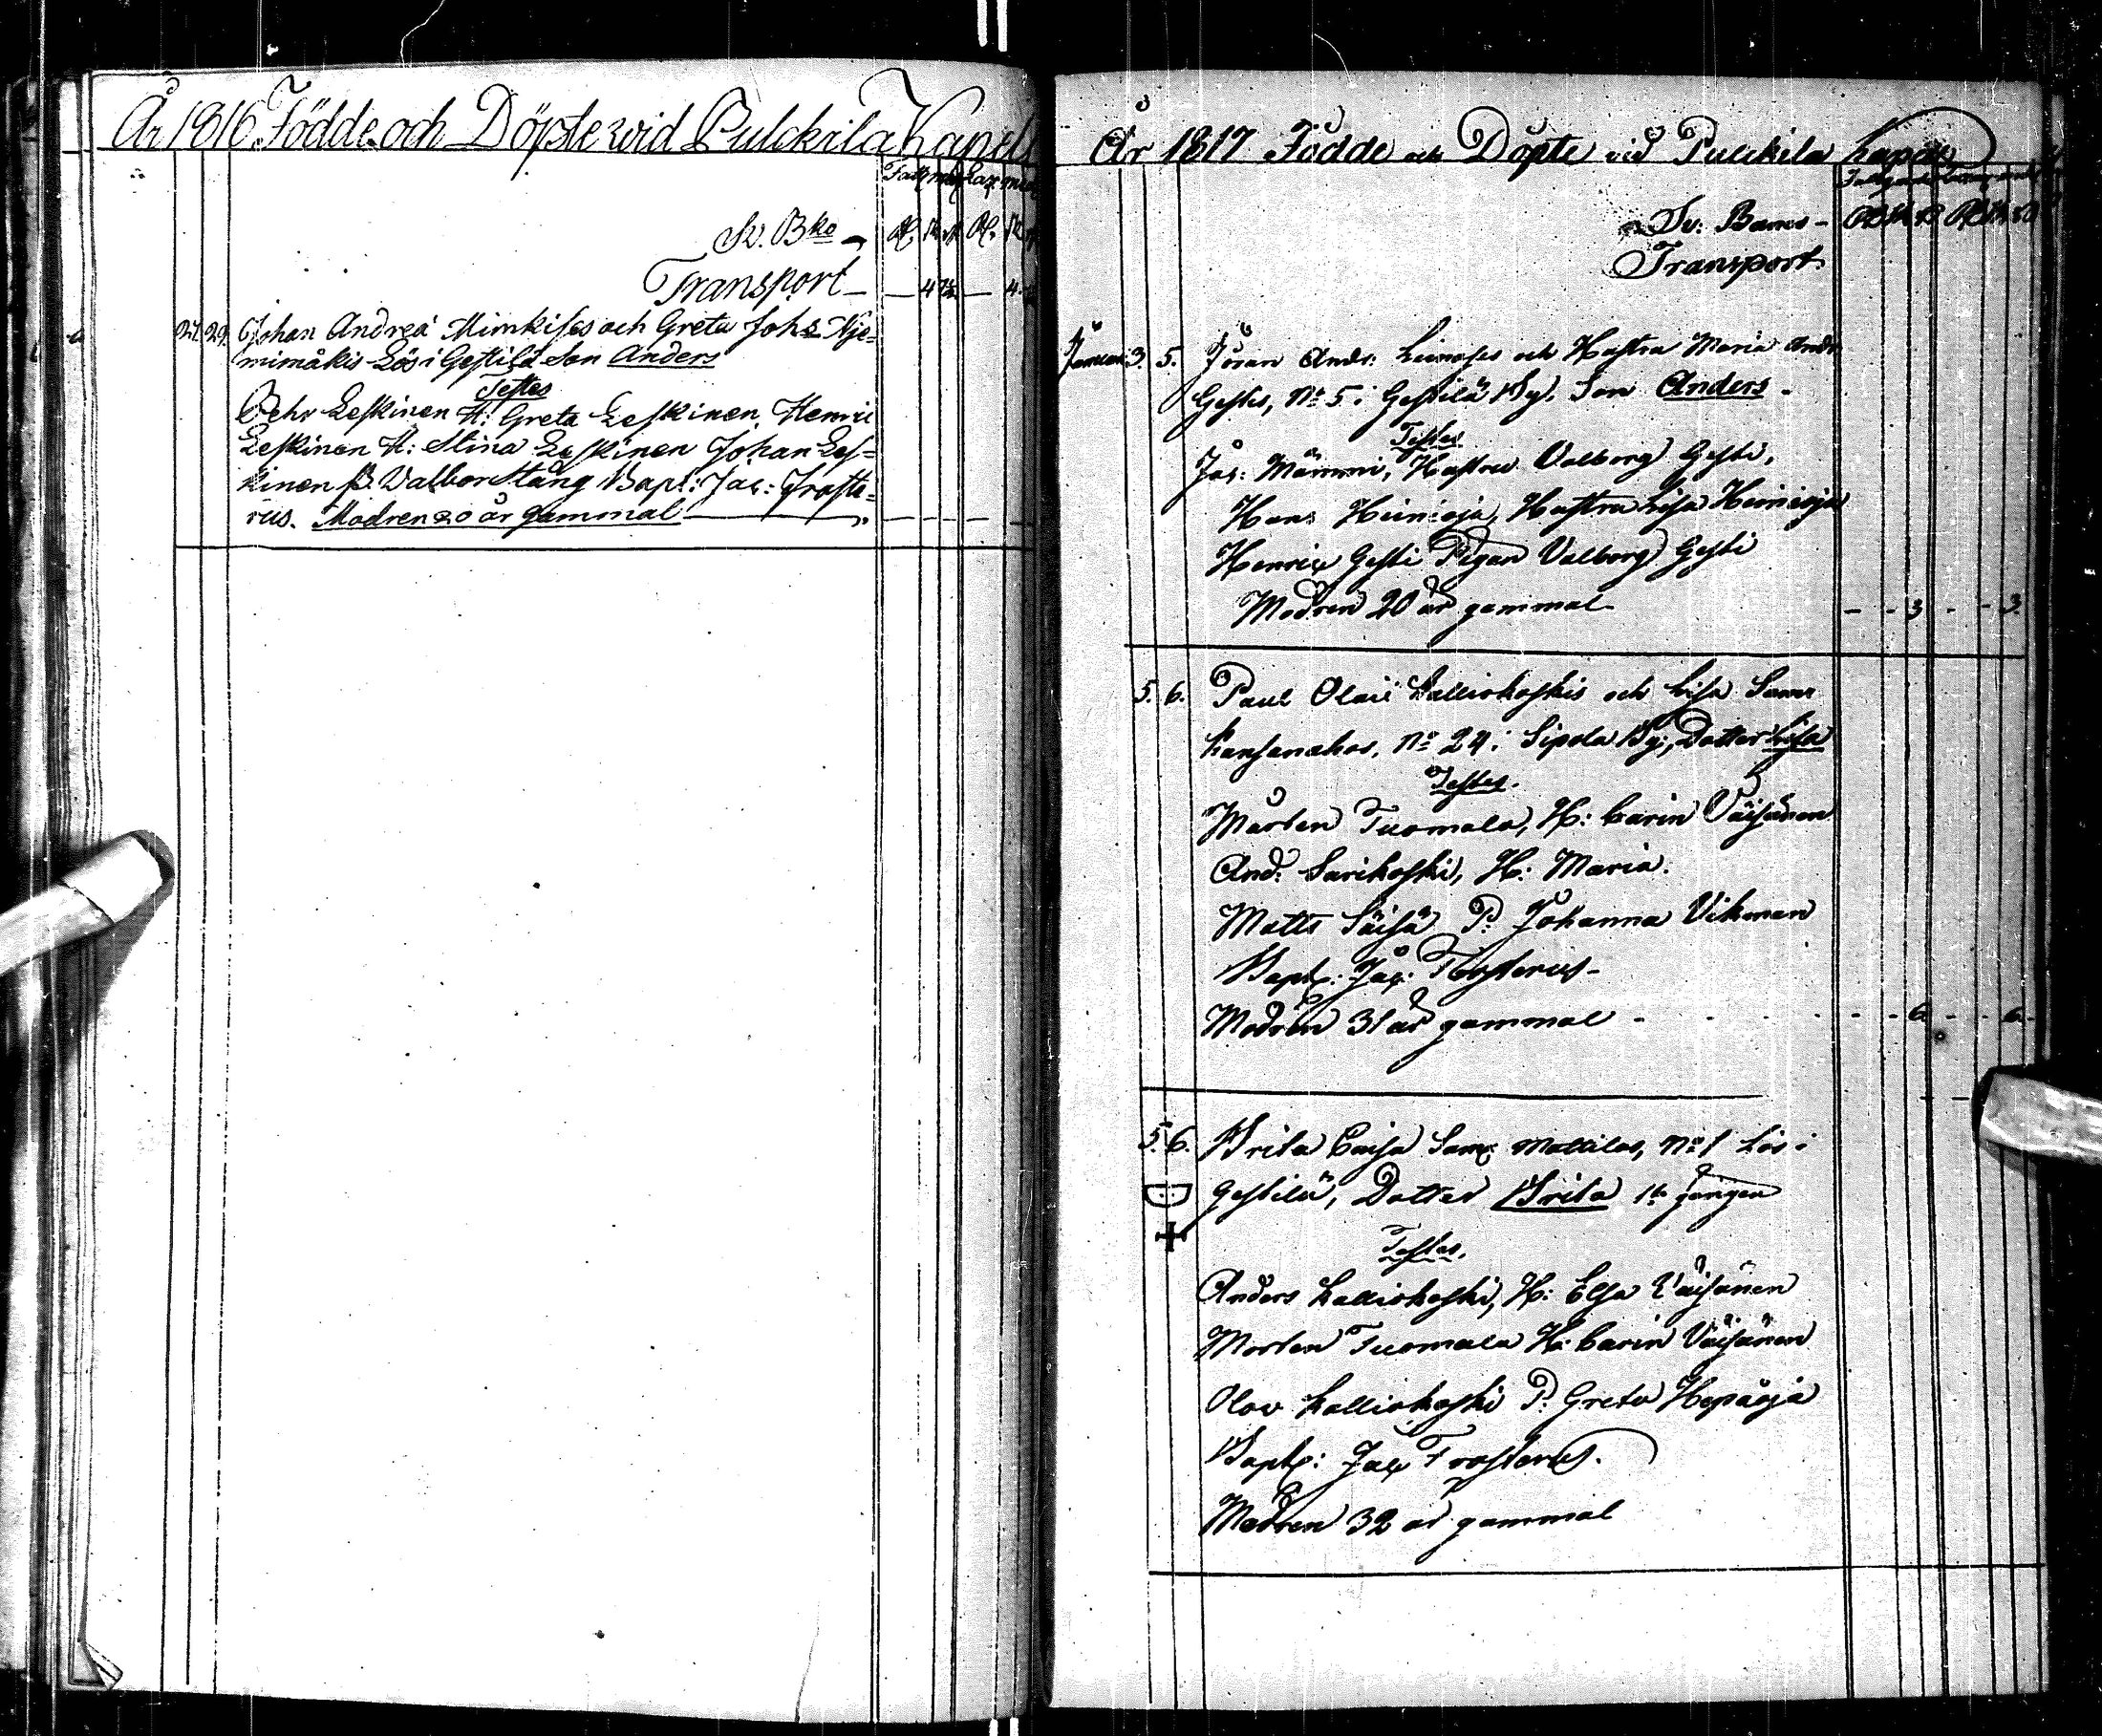 År 1816. Födde och Döpte wid Pulckila Kapell
Sv. Bko
Transport
27. 29. Johan Andreæ Mimkises och Greta Johs Nje=
mimäkis Lös i Gestilä Son Anders
Testes
Pehr Leskinen H: Greta Leskinen Henric
Leskinen H: Stina Leskinen Johan Les=
kinen P. Valbor Stång Bapt: Jac: Froste=
rus. Modren 20 år gammal
År 1817 Födde och Döpte vid Pulckila Capell
Sv: Banco
Transport
Januari 3. 5. Jöran Anders: och Hustru Maria Andr:
Gestis, No 5 i Gestilä By, Son Anders
Testes
Jac: Mämmi, Hustru Valborg Gesti,
Hans Heinioja, Hustru Lisa Heinioja
Henric Gesti Pigan Valborg Gesti
Modren 20 år gammal - - 3 - - 3
5. 6. Paul Olai Kalliokoskis och Lisa Sam:
Kansanahos, No 24 i Sipola By, Dotter Lisa
Testes.
Mårten Tuomala, H: Carin Väisänen
And: Sarikoski, H: Maria.
Matts Säisä P: Johanna Vikman
Bapt: Jac: Frosterus
Modren 31 år gammal - - 6 - - 6
5. 6. Brita Caisa Sam: Mattilas, No 1 Lös i
Gestilä, Dotter Brita 1sta gången
Testes.
Anders Kalliokoski, H: Elsa Väisänen
Morten Tuomala H: Carin Väisänen
Olov Kalliokoski P. Greta Hepäoja
Bapt: Jac Frosterus.
Modren 32 år gammal